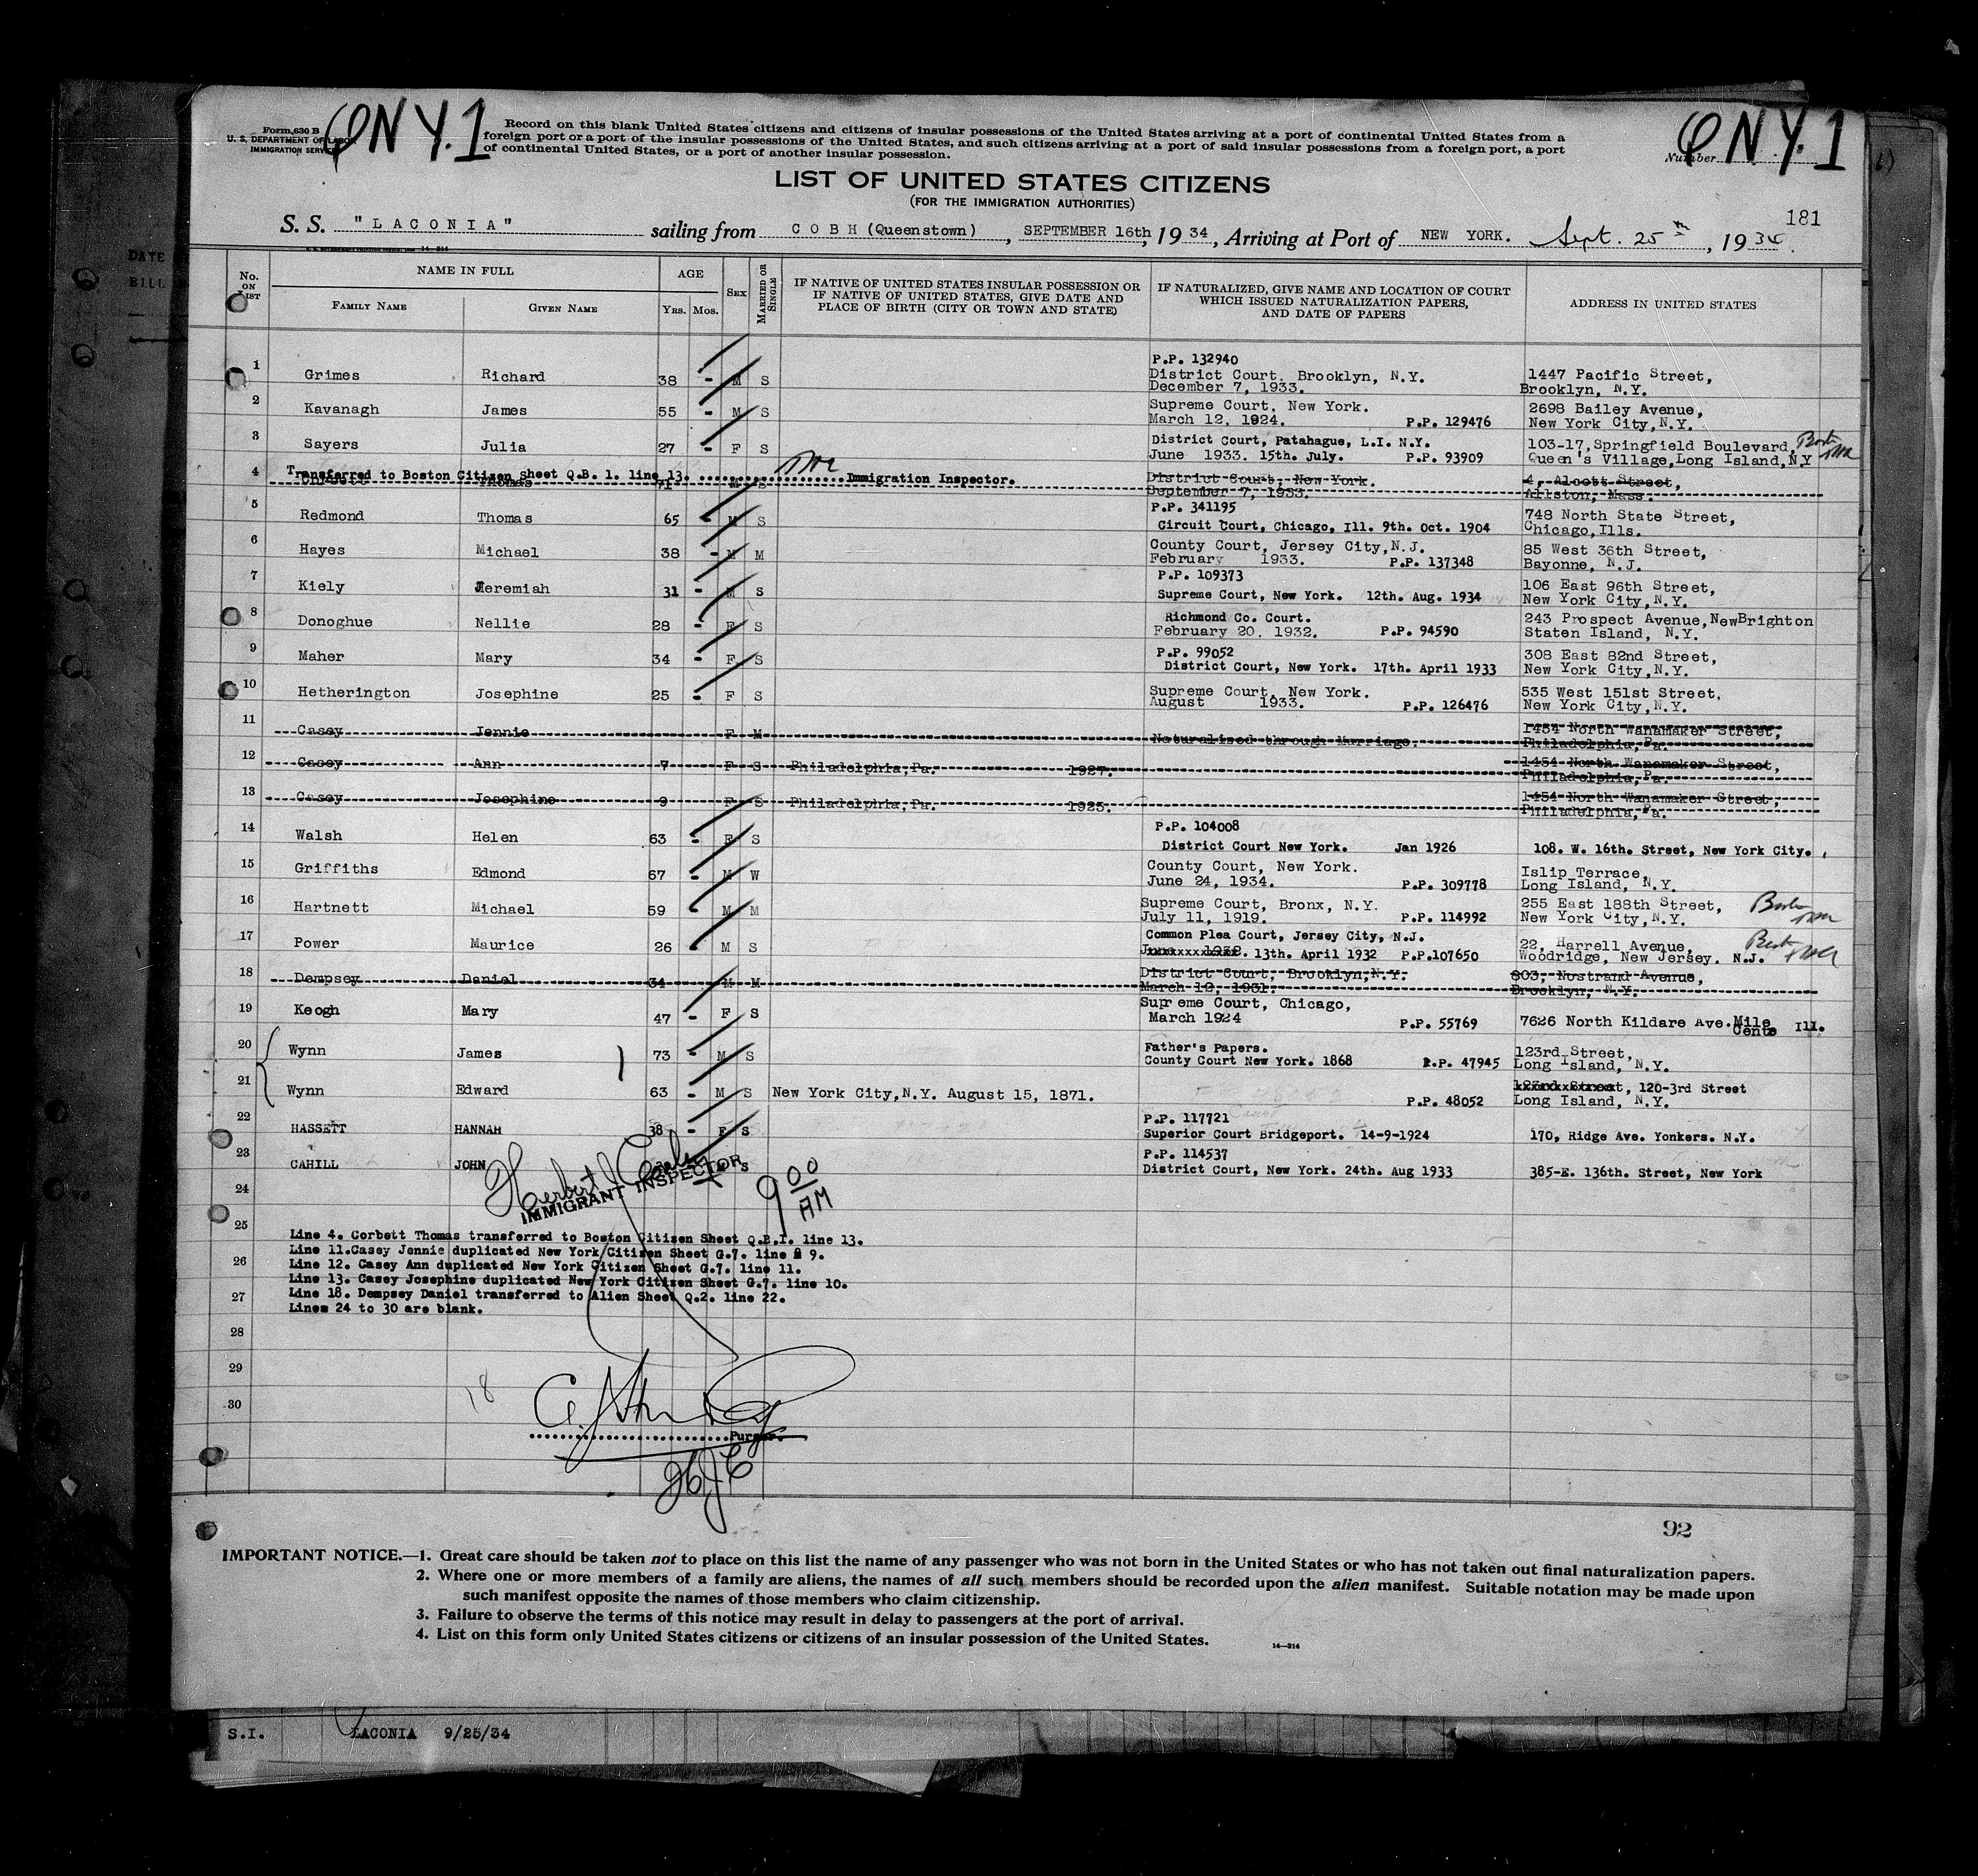 Form 630 B
U. S. DEPARTMENT OF LABOR
IMMIGRATION SERVICE
QNY.1
Record on this blank United States citizens and citizens of insular possessions of the United States arriving at a port of continental United States from a
foreign port or a port of the insular possessions of the United States, and such citizens arriving at a port of said insular possessions from a foreign port, a port
of continental United States, or a port of another insular possession.
Number QNY.1
LIST OF UNITED STATES CITIZENS
(FOR THE IMMIGRATION AUTHORITIES)
181
S. S. "LACONIA" sailing from COBH (Queenstown), SEPTEMBER 16th, 1934, Arriving at Port of NEW YORK. Sept. 25th, 1934.
No. ON LIST
NAME IN FULL
FAMILY NAME GIVEN NAME
AGE
Yrs. Mos.
SEX
MARRIED OR SINGLE
IF NATIVE OF UNITED STATES INSULAR POSSESSION OR
IF NATIVE OF UNITED STATES, GIVE DATE AND
PLACE OF BIRTH (CITY OR TOWN AND STATE)
IF NATURALIZED, GIVE NAME AND LOCATION OF COURT
WHICH ISSUED NATURALIZATION PAPERS,
AND DATE OF PAPERS
ADDRESS IN UNITED STATES
P.P. 132940
1 Grimes Richard 38 - M S District Court, Brooklyn, N.Y. 1447 Pacific Street,
December 7, 1933. Brooklyn, N.Y.
2 Kavanagh James 55 - M S Supreme Court, New York. 2698 Bailey Avenue,
March 12, 1924. P.P. 129476 New York City, N.Y.
3 Sayers Julia 27 - F S District Court, Patahague, L.I. N.Y. 103-17, Springfield Boulevard,
June 1933. 15th. July. P.P. 93909 Queen's Village, Long Island, N.Y
4 Transferred to Boston Citizen sheet Q.B. 1. line 13. Immigration Inspector.
Corbett Thomas 71 M S District Court, New York. 4, Alcott Street,
September 7, 1933. Allston, Mass.
P.P. 341195
5 Redmond Thomas 65 - M S Circuit Court, Chicago, Ill. 9th. Oct. 1904 748 North State Street,
Chicago, Ills.
6 Hayes Michael 38 - M M County Court, Jersey City, N.J. 85 West 36th Street,
February 1933. P.P. 137348 Bayonne, N.J.
P.P. 109373
7 Kiely Jeremiah 31 - M S Supreme Court, New York. 12th. Aug. 1934 106 East 96th Street,
New York City, N.Y.
8 Donoghue Nellie 28 - F S Richmond Co. Court. 243 Prospect Avenue, NewBrighton
February 20, 1932. P.P. 94590 Staten Island, N.Y.
P.P. 99052
9 Maher Mary 34 - F S District Court, New York. 17th. April 1933 308 East 82nd Street,
New York City, N.Y.
10 Hetherington Josephine 25 - F S Supreme Court, New York. 535 West 151st Street,
August 1933. P.P. 126476 New York City, N.Y.
11 Casey Jennie F M Naturalized through Marriage. 1454 North Wanamaker Street,
Philadelphia, Pa.
12 Casey Ann 7 F S Philadelphia, Pa. 1927. 1454 North Wanamaker Street,
Philadelphia, Pa.
13 Casey Josephine 9 F S Philadelphia, Pa. 1925. 1454 North Wanamaker Street,
Philadelphia, Pa.
P.P. 104008
14 Walsh Helen 63 - F S District Court New York. Jan 1926 108. W. 16th. Street, New York City.
15 Griffiths Edmond 67 - M W County Court, New York. Islip Terrace,
June 24, 1934. P.P. 309778 Long Island, N.Y.
16 Hartnett Michael 59 - M M Supreme Court, Bronx, N.Y. 255 East 188th Street,
July 11, 1919. P.P. 114992 New York City, N.Y.
17 Power Maurice 26 - M S Common Plea Court, Jersey City, N.J. 22, Harrell Avenue,
13th. April 1932 P.P.107650 Woodridge, New Jersey. N.J.
18 Dempsey Daniel 34 M M District Court, Brooklyn, N.Y. 803, Nostrand Avenue,
March 12, 1931. Brooklyn, N.Y.
19 Keogh Mary 47 - F S Supreme Court, Chicago,
March 1924 P.P. 55769 7626 North Kildare Ave. Mile Cente Ill.
20 Wynn James 73 - M S Father's Papers. 123rd Street,
County Court New York. 1868 P.P. 47945 Long Island, N.Y.
21 Wynn Edward 63 - M S New York City, N.Y. August 15, 1871. 120-3rd Street
P.P. 48052 Long Island, N.Y.
P.P. 117721
22 HASSETT HANNAH 38 - F S Superior Court Bridgeport. 14-9-1924 170, Ridge Ave. Yonkers. N.Y.
P.P. 114537
23 CAHILL JOHN S District Court, New York. 24th. Aug 1933 385-E. 136th. Street, New York
24
Herbert J
IMMIGRANT INSPECTOR
9 00 AM
25
Line 4. Corbett Thomas transferred to Boston Citizen Sheet Q.B.I. line 13.
Line 11.Casey Jennie duplicated New York Citizen Sheet G.7. line 9.
26
Line 12. Casey Ann duplicated New York Citizen Sheet G.7. line 11.
Line 13. Casey Josephine duplicated New York Citizen Sheet G.7. line 10.
27
Line 18. Dempsey Daniel transferred to Alien Sheet Q.2. line 22.
Lines 24 to 30 are blank.
28
29
18
30
Purser.
HJC
92
IMPORTANT NOTICE.—1. Great care should be taken not to place on this list the name of any passenger who was not born in the United States or who has not taken out final naturalization papers.
2. Where one or more members of a family are aliens, the names of all such members should be recorded upon the alien manifest. Suitable notation may be made upon
such manifest opposite the names of those members who claim citizenship.
3. Failure to observe the terms of this notice may result in delay to passengers at the port of arrival.
4. List on this form only United States citizens or citizens of an insular possession of the United States.
14—314
S.I. LACONIA 9/25/34